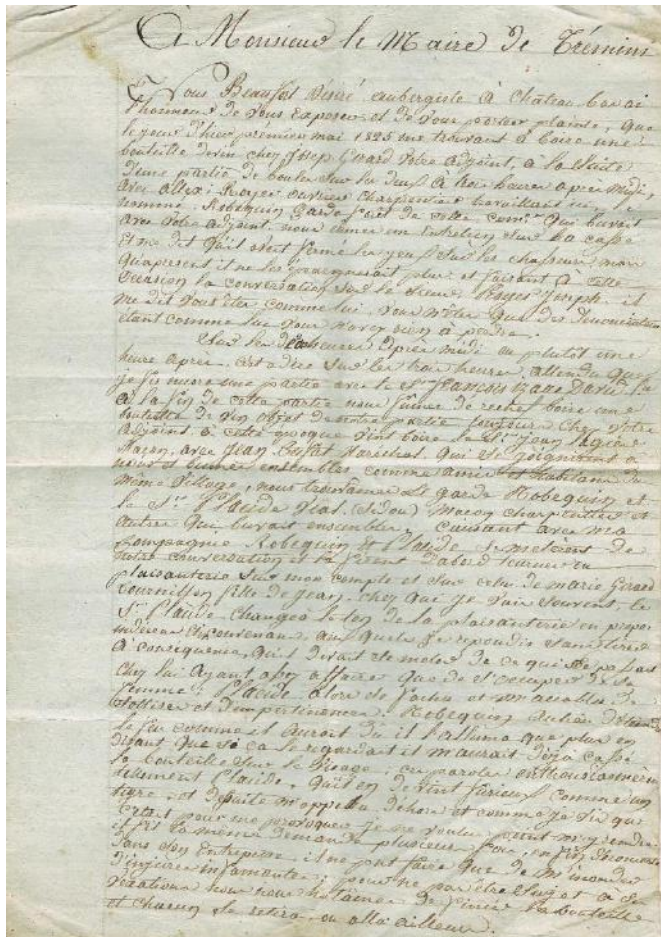 A Monsieur le Maire de Trémins
Nous Beaufol Désiré aubergiste à Château-bas ai
l'honneur de vous exposer et de vous porter plainte, que
le jour d'hier premier mai 1825 me trouvant à boire une
bouteille de vin chez Josep Girard votre adjoint, à la suite
d'une partie de boules sur les deux à trois heures après midi,
avec Allex: Royer ouvrier charpentier travaillant ici,
nommé Robequin garde forêt de cette comne qui buvait
avec votre adjoint, nous un entretien sur la casse
et me dit qu'il avait fermé les yeux sur les chasseurs mais
qu'apresent il ne les épargnerait plus et faisant à cette
occasion la conversation sur le sieur Joseph, il
me dit vous êtes comme lui, vous n'ête que des
étant comme lui vous n'avez rien à perdre.
Sur les deux heures après midi ou plutôt une
heure après, c'est a dire sur les trois heures, attendu que
je fis encore une partie avec le Sr françois
à la fin de cette partie nous fûmes de rechef boire une
bouteille de vin objet de notre partie toujours chez votre
adjoint, à cette époque vint boire le Sr jean
Maçon, avec jean Maréchal qui se joignirent à
nous et bûmes ensembles comme amis et habitans du
même village, nous trouvâmes le garde Robequin et
le Sr Placide Vial (Sidou) maçon charpentier et
autres qui buvait ensembles, causant avec ma
compagnie Robequin et Placide se mêlèrent de
notre conversation et se firent d'abord
plaisanterie sur mon compte et sur celui de marie Gerard
Cournillon fille de jean, chez qui je vais souvent, le
Sr Placide changea le ton de la plaisanterie en propos
indécens auxquels je repondis sans tirer
à conséquence, qu'il devait se meler de ce qui se passait
chez lui ayant assez affaire que de s'occuper de sa
femme; Placide alors se facha et m'accabla de
sottises et d'impertinences. Robequin au lieu d'éteindre
le feu comme il auroit dû il l'alluma que plus en
disant que si ca le regardait il m'aurait déjà cassé
la bouteille sur le visage; ces paroles
tellement Placide, qu'il en devint furieux comme un
tigre, et desuite m'appella dehors et comme je vis que
c'etait pour me provoquer je ne voulu point m'y rendre
il fit la même demande plusieurs fois, enfin
dans son entreprise il ne put faire que de m'inonder
d'injures infamantes; pour ne pas être sujet à ses
vexations nous nous hatâmes de finir la bouteille
et chacun se retira, ou alla ailleurs.